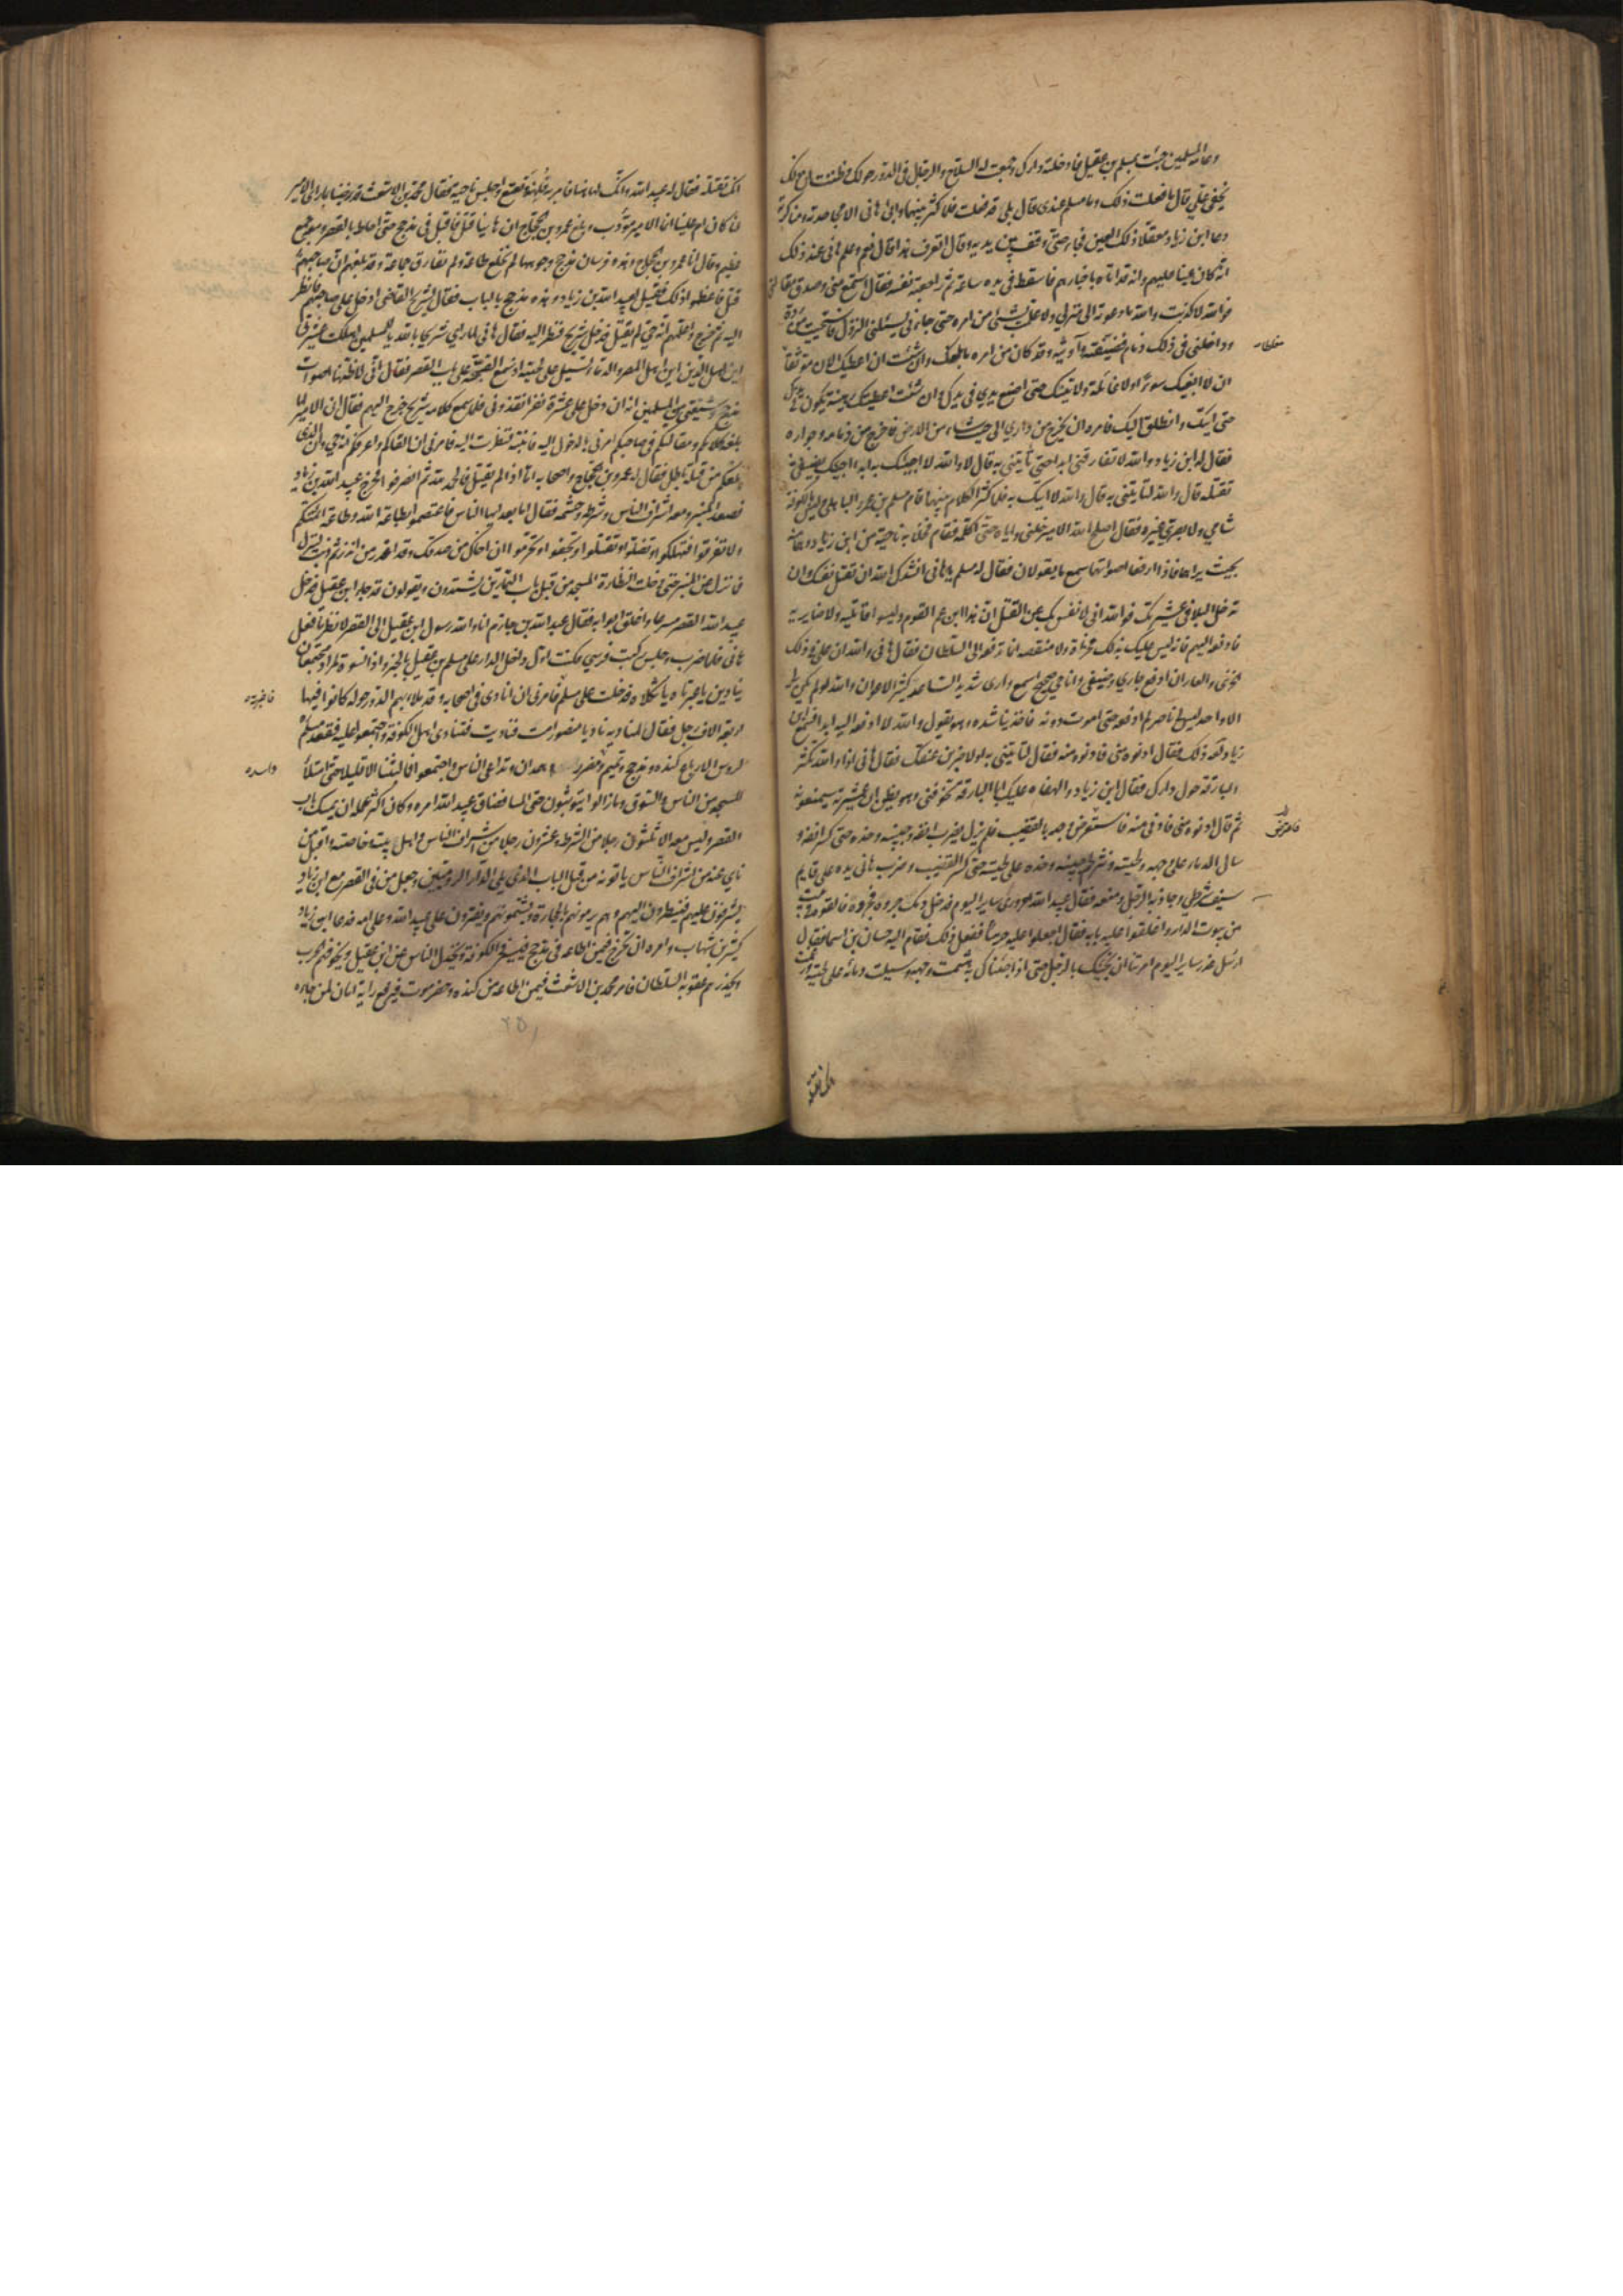 وعامة المسلمين جئت بمسلم بن عقيل فادخلته دارك وجمعت له السلاح والرجال فى الدور حولك وظننت ان ذلك
يخفى علىّ قال ما فعلت ذلك وما مسلم عندى قال بلى قد فعلت فلما كثر بينهما وابى هانى الا مجاحدته ومناكرته
دعا ابن زياد معقلا ذلك العين فجاء حتى وقف بين يديه وقال اتعرف هذا قال نعم وعلم هانى عند ذلك
انه كان عينا عليهم وانه قد اتاه باخبارهم فاسقط فى يده ساعة ثم راجعته نفسه فقال استمع منى وصدق مقالتى
فوالله لا كذبت والله ما دعوته الى منزلي ولا علمت بشئ من امره حتى جاءنى يسئلنى النزول فاستحييت من رده
وداخلنى فى ذلك ذمام فضيفته وآويته وقد كان من امره ما بلغك وان شئت ان اعطيك الان موثقا
ان لا ابغيك سوءا ولا غائلة ولا تينك حتى اضع يدي فى يدك وان شئت اعطيتك رهينة يكون فى يدك
حتى اتيك وانطلق اليك فامره ان يخرج من داري الى حيث شاء من الارض فاخرج من ذمامه وجواره
فقال له ابن زياد والله لا تفارقنى ابدا حتى تأتينى به قال لا والله لا اجيئك به ابدا اجيئك بضيفى
تقتله قال والله لتأتينى به قال والله لا آتيك به فلما كثر الكلام بينهما قام مسلم بن عمرو الباهلى وليس بالكوفة
شامي ولا بصري غيره فقال اصلح الله الامير خلنى واياه حتى اكلمه فقام فخلا به ناحية من ابن زياد وهما منه
بحيث يراهما فاذا رفعا اصواتهما سمع ما يقولان فقال له مسلم يا هانى انشدك الله ان تقتل نفسك وان
تدخل البلاء فى عشيرتك فوالله انى لانفس بك عن القتل ان هذا ابن عم القوم وليسوا قاتليه ولا ضائريه
فادفعه اليهم فانه ليس عليك بذلك مخزاة ولا منقصة انما تدفعه الى السلطان فقال هانى والله ان على فى ذلك
الخزى والعار ان ادفع جاري وضيفى وانا حي صحيح اسمع وارى شديد الساعد كثير الاعوان والله لو لم يكن لى
الا واحد ليس لى ناصر لم ادفعه حتى اموت دونه فاخذ يناشده وهو يقول والله لا ادفعه اليه ابدا فسمع ابن
زياد لعنه ذلك فقال ادنوه منى فادنوه منه فقال لتأتينى به او لاضربن عنقك فقال هانى اذا والله تكثر
البارقة حول دارك فقال ابن زياد والهفاه عليك ابا البارقة تخوفنى وهو يظن ان عشيرته سيمنعونه
ثم قال ادنوه منى فادنى منه فاستعرض وجهه بالقضيب فلم يزل يضرب انفه وجبينه وخده حتى كسر انفه و
سال الدماء على وجهه ولحيته ونثر لحم جبينه وخده على لحيته حتى كسر القضيب وضرب هانى يده على قايم
سيف شرطي وجاذبه الرجل ومنعه فقال عبيد الله احروري ساير اليوم قد حل دمك جروه فجروه فالقوه فى بيت
من بيوت الدار واغلقوا عليه بابه فقال اجعلوا عليه حرسا ففعل ذلك فقام اليه حسان بن اسما فقال
ارسل غدر ساير اليوم امرتنا ان نجيئك بالرجل حتى اذا جئناك به هشمت وجهه وسيلت دمائه على لحيته وزعمت
انك تقتله
انك تقتله فقال له عبيد الله وانك لهاهنا فامر به فلهز وتعتع واجلس ناحية فقال محمد بن الاشعث قد رضينا بما راى الامير
لنا كان ام علينا انما الامير مؤدب وبلغ عمرو بن الحجاج ان هانيا قتل فاقبل فى مذحج حتى احاط بالقصر ومعه جمع
عظيم وقال انا عمرو بن الحجاج وهذه فرسان مذحج ووجوهها لم تخلع طاعة ولم تفارق جماعة وقد بلغهم ان صاحبهم
قتل فاعظموا ذلك فقيل لعبيد الله بن زياد وهذه مذحج بالباب فقال لشريح القاضى ادخل على صاحبهم فانظر
اليه ثم اخرج واعلمهم انه حي لم يقتل فدخل شريح فنظر اليه فقال هانى لما راى شريحا يا لله يا للمسلمين اهلكت عشيرتى
اين اهل الدين اين اهل المصر والدماء تسيل على لحيته اذ سمع الضجة على باب القصر فقال انى لاظنها اصوات
مذحج وشيعتى من المسلمين انه ان دخل على عشرة نفر انقذونى فلما سمع كلامه شريح خرج اليهم فقال ان الامير لما
بلغه كلامكم ومقالتكم فى صاحبكم امرنى بالدخول اليه فاتيته فنظرت اليه فامرنى ان القاكم واعرفكم انه حي وان الذى
بلغكم من قتله باطل فقال له عمرو بن الحجاج واصحابه اما اذا لم يقتل فالحمد لله ثم انصرفوا فخرج عبيد الله بن زياد
فصعد المنبر ومعه اشراف الناس وشرطه وحشمه فقال اما بعد ايها الناس فاعتصموا بطاعة الله وطاعة ائمتكم
ولا تفرقوا فتهلكوا وتضلوا وتقتلوا وتجفوا وتحرموا ان اخاك من صدقك وقد اعذر من انذر ثم ذهب لينزل
فما نزل عن المنبر حتى دخلت النظارة المسجد من قبل باب التمارين يشتدون ويقولون قد جاء ابن عقيل فدخل
عبيد الله القصر مسرعا واغلق ابوابه فقال عبد الله بن حازم انا والله رسول ابن عقيل الى القصر لانظر ما فعل
هانى فلما ضرب وحبس ركبت فرسي فكنت اول داخل الدار على مسلم بن عقيل بالخبر واذا نسوة لمراد مجتمعات
ينادين يا عبرتاه يا ثكلاه فدخلت على مسلم فاخبرته فامرنى ان انادى فى اصحابه وقد ملأ بهم الدور حوله كانوا فيها
اربعة الاف رجل فقال لمناديه ناد يا منصور امت فناديت فتنادى اهل الكوفة واجتمعوا عليه فعقد مسلم
لرؤس الارباع كندة ومذحج وتميم ومضر واسد وهمدان وتداعى الناس واجتمعوا فما لبثنا الا قليلا حتى امتلأ
المسجد من الناس والسوق وما زالوا يتوثبون حتى المسا فضاق بعبيد الله امره وكان اكثر عمله ان يمسك باب
القصر وليس معه الا ثلثون رجلا من الشرط وعشرون رجلا من اشراف الناس واهل بيته خاصته واقبل من
نأي عنه من اشراف الناس ياتونه من قبل الباب الذى يلى دار الروميين وجعل من فى القصر مع ابن زياد
يشرفون عليهم فينظرون اليهم وهم يرمونهم بالحجارة ويشتمونهم ويفترون على عبيد الله وعلى امه فدعا ابن زياد
كثير بن شهاب وامره ان يخرج فيمن اطاعه فى مذحج فيسير فى الكوفة ويخذل الناس عن ابن عقيل ويخوفهم الحرب
ويحذرهم عقوبة السلطان فامر محمد بن الاشعث فيمن اطاعه من كندة وحضرموت فيرفع راية امان لمن جاءه
فاخبرته
واسد